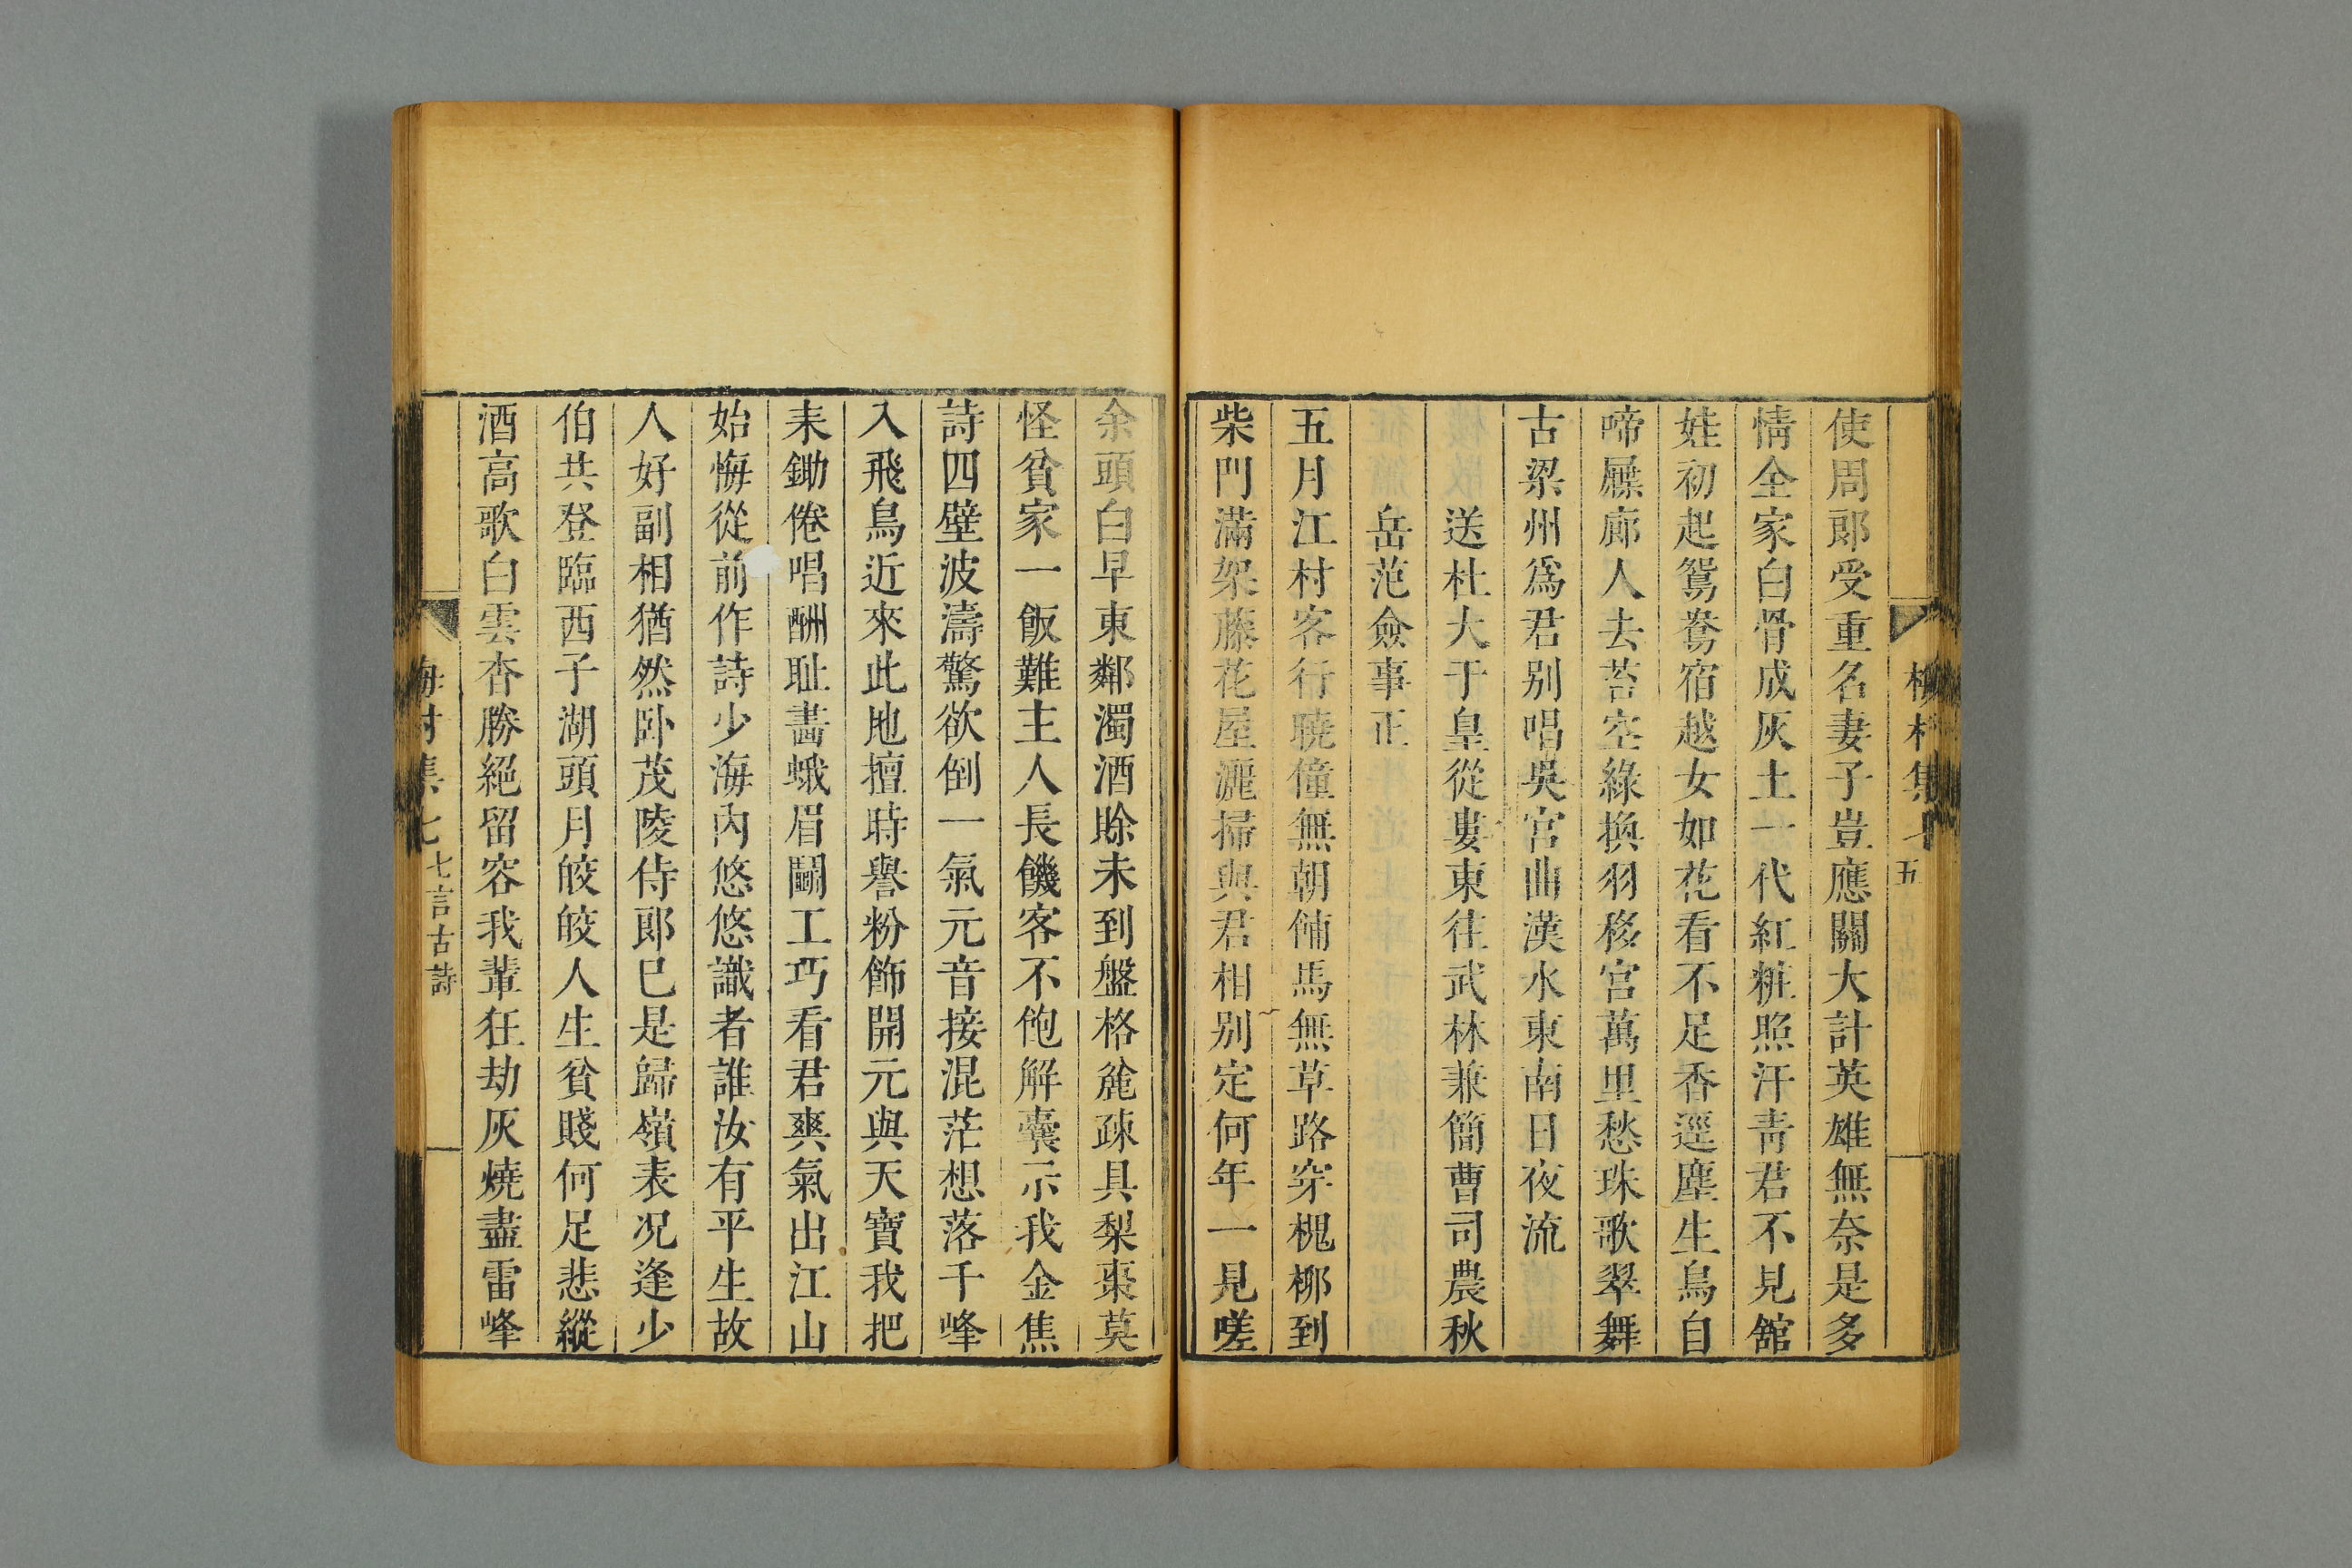 梅村集
五
使周郎受重名妻子豈應關大計英雄無奈是多
情全家白骨成灰土一代紅粧照汗靑君不見舘
娃初起鴛鴦宿越女如花看不足香逕塵生鳥自
啼屧廊人去苔空綠換羽移宮萬里愁珠歌翠舞
古梁州爲君别唱吳宮曲漢水東南日夜流
送杜大于皇從婁東往武林兼簡曹司農秋
岳范僉事正
五月江村客行曉僮無朝餔馬無草路穿槐柳到
柴門滿架藤花屋灑掃與君相别定何年一見嗟
余頭白早東鄰濁酒賒未到盤格麄疎具梨棗莫
怪貧家一飯難主人長饑客不飽解囊示我金焦
詩四壁波濤驚欲倒一氣元音接混茫想落千峰
入飛鳥近來此地擅時譽粉飾開元與天寶我把
耒鋤倦唱酬耻畵蛾眉鬭工巧看君爽氣出江山
始悔從前作詩少海內悠悠識者誰汝有平生故
人好副相猶然卧茂陵侍郎已是歸嶺表况逢少
伯共登臨西子湖頭月皎皎人生貧賤何足悲縱
酒高歌白雲杳勝絕留容我輩狂劫灰燒盡雷峰
梅村集七
七言古詩